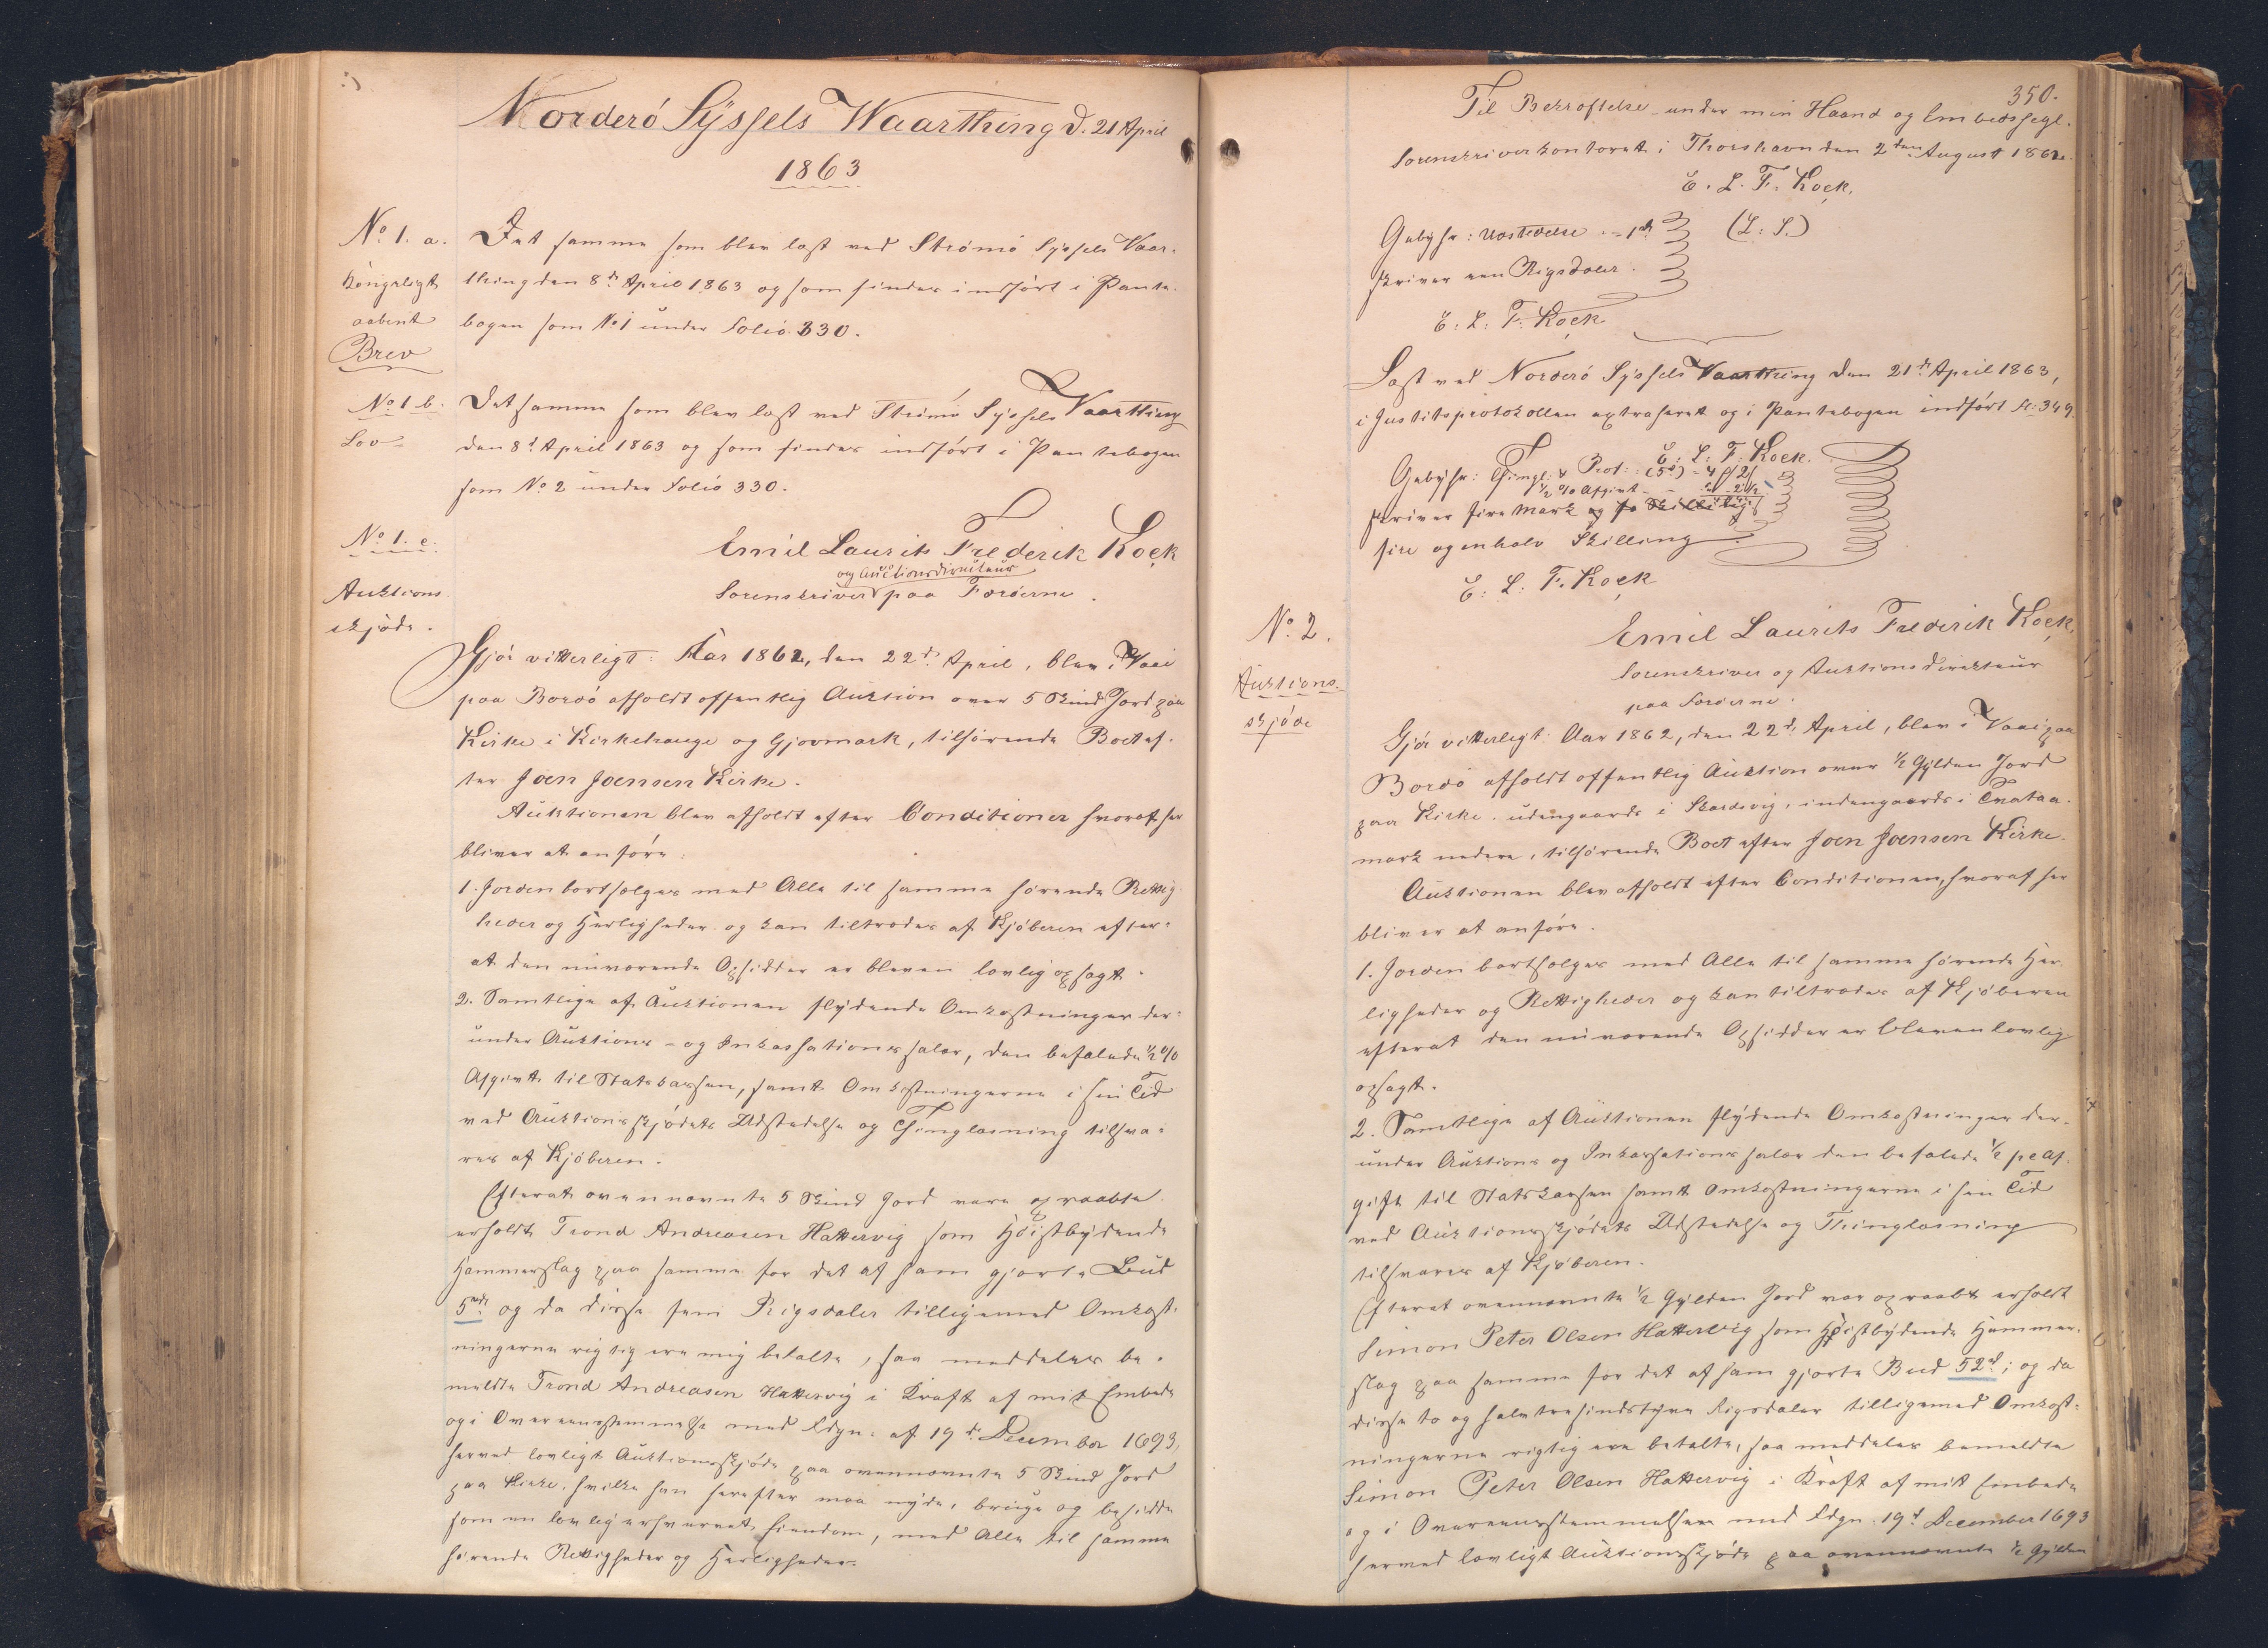 Norderö Sÿssels Waarthing d. 21 April
1863
No 1. a.
Kongeligt
aabent
Brev
Det samme som blev læst ved Strömö Sÿssels Vaar-
thing den 8de April 1863 og som findes indfört i Pante-
bogen som No 1 under Folio 330.
No 1 b.
Lov
Det samme som blev læst ved Strömö Sÿssels Vaarthing
den 8d April 1863 og som findes indfört i Pantebogen
som No 2 under Folio 330.
No 1. c.
Auktions
skjöde.
Emil Laurits Frederik Kock
og Auctionsdirecteur
Sorenskriver paa Færöerne.
Gjör vitterligt: Aar 1862, den 22d April, blev i Vaai
paa Bordö afholdt offentlig Auktion over 5 Skind Jord paa
Kirke i Kirkehauge og Gjovmark, tilhörende Boet ef-
ter Joen Joensen Kirke.
Auktionen blev afholdt efter Conditioner hvoraf her
bliver at anföre:
1. Jorden bortsælges med Alle til samme hörende Rettig-
heder og Herligheder og kan tiltrædes af Kjöberen efter-
at den nuværende Opsidder er bleven lovlig opsagt.
2. Samtlige af Auktionen flÿdende Omkostninger der-
under Auktions- og Inkassationssalær, den befalede ½ %
Afgivt til Statskassen, samt Omkostningerne i sin Tid
ved Auktionsskjödets Udstedelse og Thinglæsning tilsva-
res af Kjöberen.
Efterat ovennævnte 5 Skind Jord vare opraabte
erholdt Trond Andreasen Hattervig som Höistbÿdende
Hammerslag paa samme for det af ham gjorte Bud
5 rd og da disse fem Rigsdaler tilligemed Omkost-
ningerne rigtig ere mig betalte, saa meddeles be-
meldte Trond Andreasen Hattervig i Kraft af mit Embede
og i Overeensstemmelse med Fdgn. af 19d December 1693,
herved lovligt Auktionsskjöde paa ovennævnte 5 Skind Jord
paa Kirke, hvilke han herefter maa nÿde, bruge og besidde
som en lovlig erhvervet Eiendom, med Alle til samme
hörende Rettigheder og Herligheder.
350.
Til Bekræftelse under min Haand og Embedssegl.
Sorenskriverkontoret i Thorshavn den 2den August 1862.
E. L. F. Kock.
Gebÿhr: Udstedelse = 1rd (L. S.)
skriver een Rigsdaler.
E. L. F. Kock
Læst ved Norderö Sÿssels Vaarthing den 21d April 1863,
i Justitsprotokollen extraheret og i Pantebogen indfört fl: 349.
E. L. F. Kock.
Gebÿhr: Thingl. & Prot: (5d) = 4 ß 2 ß
½ % Afgivt - 2½
skriver fire Mark og to Skilling
fire og en halv Skilling
E. L. F. Kock
No 2.
Auktions-
skjöde
Emil Laurits Frederik Kock,
Sorenskriver og Auktionsdirekteur
paa Færöerne.
Gjör vitterligt: Aar 1862, den 22d April, blev i Vaai paa
Bordö afholdt offentlig Auktion over ½ Gÿlden Jord
paa Kirke udengaards i Skardsvig, indengaards i Tvataa-
mark nedre, tilhörende Boet efter Joen Joensen Kirke.
Auktionen blev afholdt efter Conditionen, hvoraf her
bliver at anföre.
1. Jorden bortsælges med Alle til samme hörende Her-
ligheder og Rettigheder og kan tiltrædes af Kjöberen
efterat den nuværende Opsidder er bleven lovlig
opsagt.
2. Samtlige af Auktionen flÿdende Omkostninger der-
under Auktions og Inkassationssalær den befalede ½ pc Af-
gift til Statskassen samt Omkostningerne i sin Tid
ved Auktionsskjödets Udstedelse og Thinglæsning
tilsvares af Kjöberen.
Efterat ovennævnte ½ Gÿlden Jord var opraabt erholdt
Simon Peter Olsen Hattervig som Höistbÿdende Hammer-
slag paa samme for det af ham gjorte Bud 52rd; og da
disse to og halvtresindstÿve Rigsdaler tilligemed Omkost-
ningerne rigtig ere betalte, saa meddeles bemeldte
Simon Peter Olsen Hattervig i Kraft af mit Embede
og i Overeensstemmelsen med Fdgn. 19d December 1693
herved lovligt Auktionsskjöde paa ovennævnte ½ Gÿlden